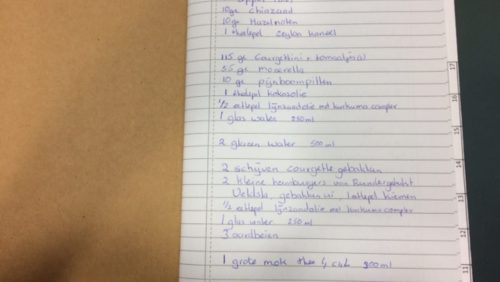 10gr chiazaad
10gr Hazelnoten
1 theelepel Ceylon kaneel
115 gr Courgettini + tomaat
55 gr mozarella
10 gr pijnboompitten
1 theelepel kokosolie
1/2 eetlepel lijnzaadolie met kurkuma complex
1 glas water 250 ml
2 glazen water 500 ml
2 schijven courgette gebakken
2 kleine hamburgers van Rundergehakt
Veldsla, gebakken ui, 1 eetlepel kiemen
1/2 eetlepel lijnzaadolie met kurkuma complex
1 glas water 250 ml
3 aardbeien
1 grote mok thee 300 ml
17
16
15
14
13
12
11